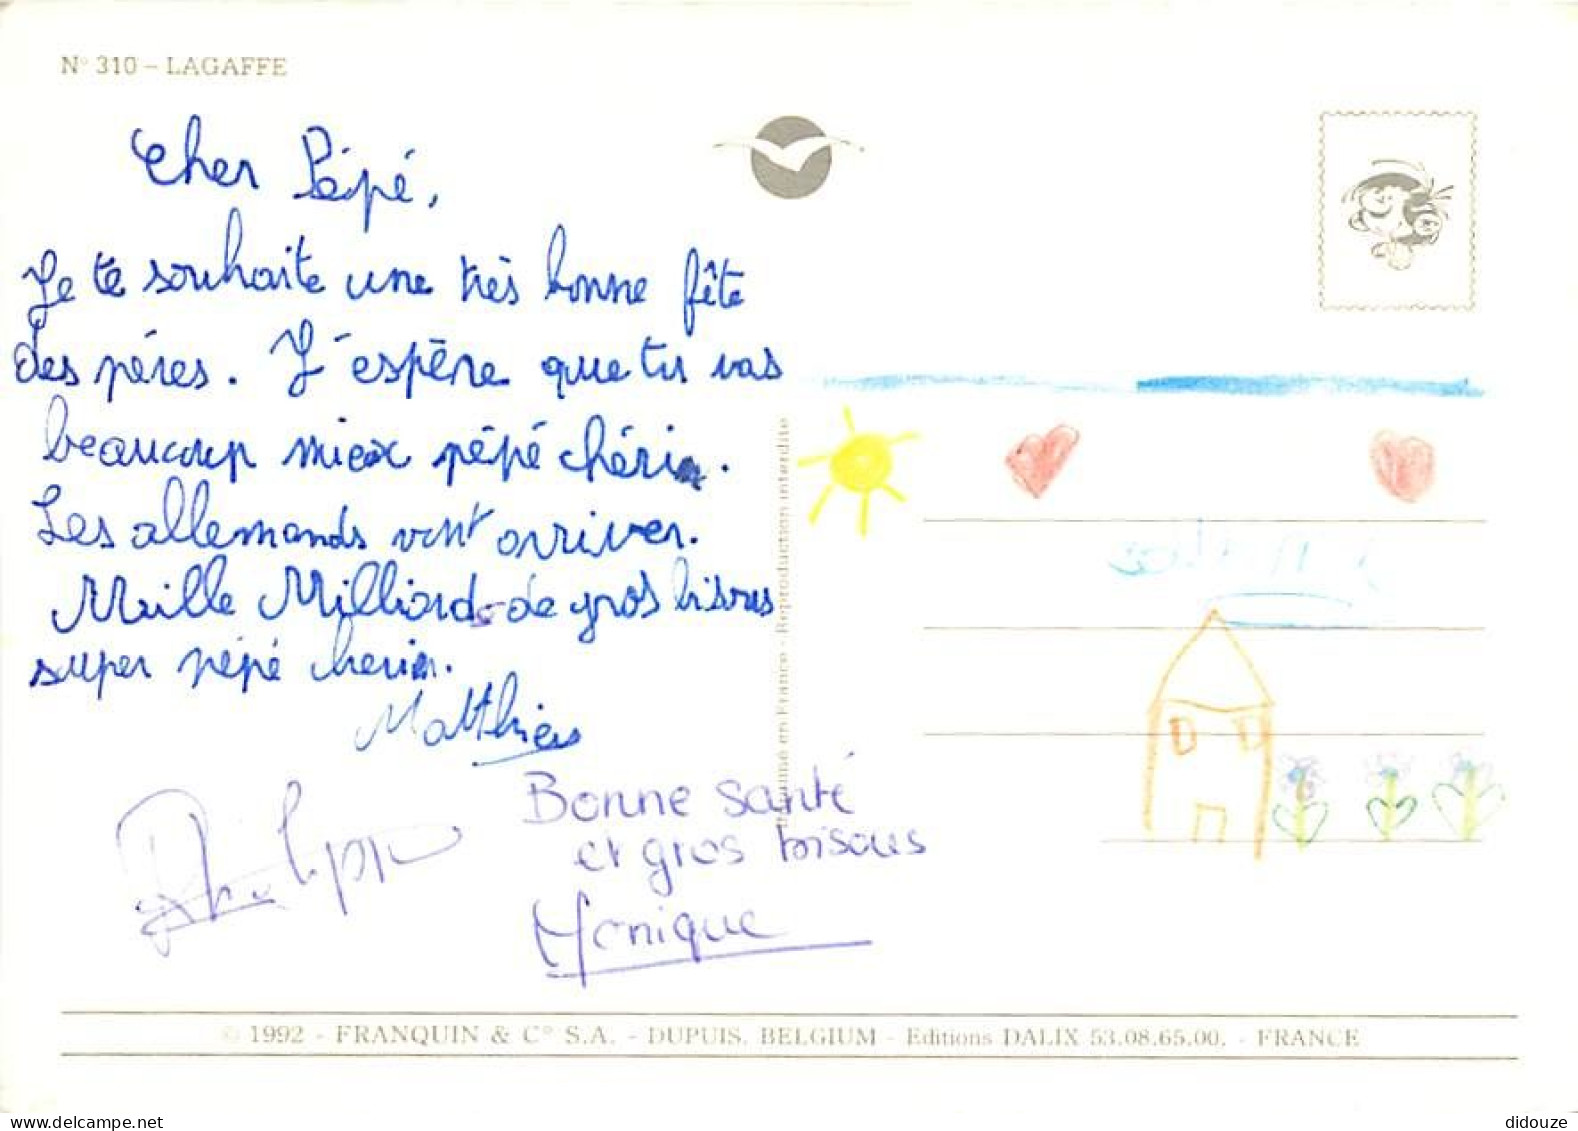 N° 310 – LAGAFFE
Cher Pépé,
Je te souhaite une très bonne fête
des péres. J'espère que tu vas
beaucoup miex pépé chéri.
Les allemands vont arriver.
Mille Milliard de gros bisous
super pépé cheri.
Matthieu
Philippe
Bonne santé
et gros bisous
Monique
en France - Reproduction interdite
© 1992 - FRANQUIN & C° S.A. - DUPUIS. BELGIUM - Editions DALIX 53.08.65.00. - FRANCE
didouze